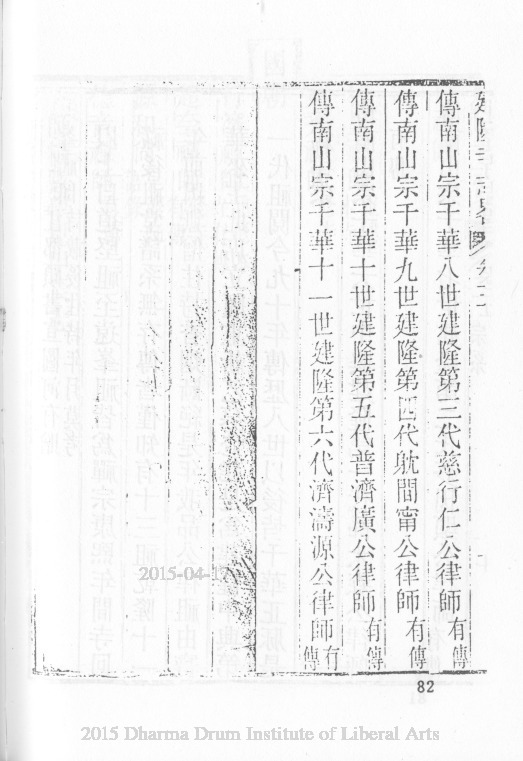 建隆寺志畧 卷三
傳南山宗千華八世建隆第三代慈行仁公律師有傳
傳南山宗千華九世建隆第四代躭間甯公律師有傳
傳南山宗千華十世建隆第五代普濟廣公律師有傳
傳南山宗千華十一世建隆第六代濟濤源公律師有傳
2015-04-17
82
2015 Dharma Drum Institute of Liberal Arts